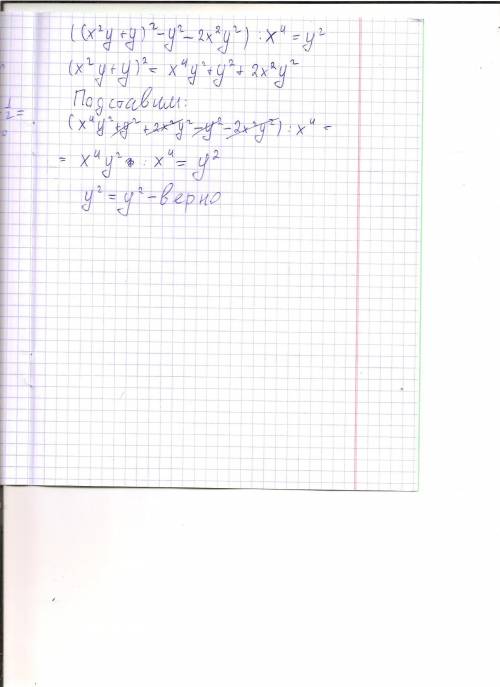 ((x²y+y)²-y²-2x²y²) : x⁴ = y²
(x²y+y)² = x⁴y²+y²+2x²y²
Подставим:
(x⁴y²+y²+2x²y²-y²-2x²y²) : x⁴ =
= x⁴y² : x⁴ = y²
y² = y² - верно
1/2 =